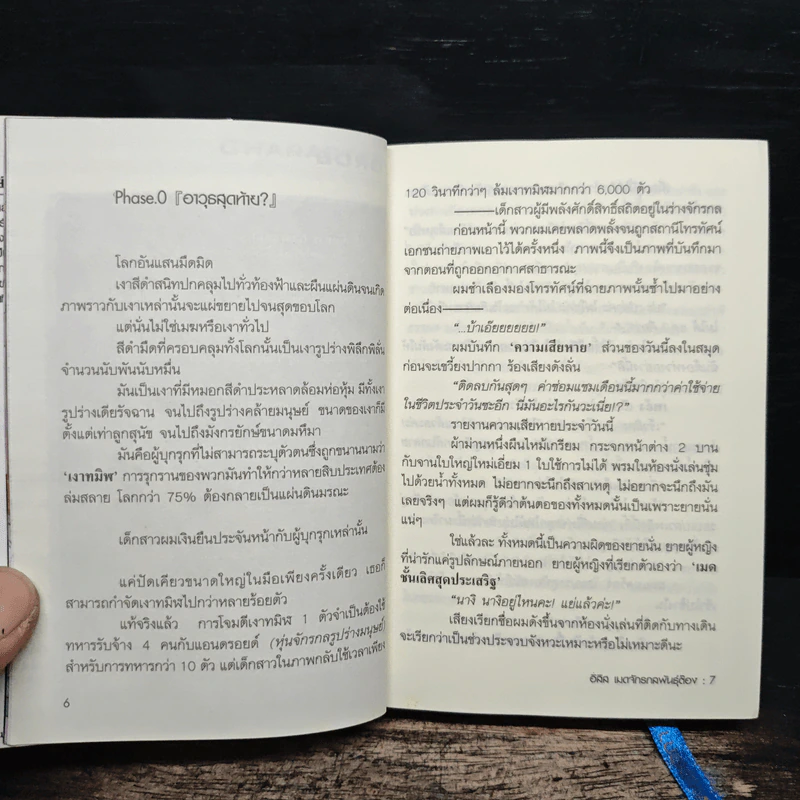 Phase.0 『อาวุธสุดท้าย?』
โลกอันแสนมืดมิด
เงาสีดำสนิทปกคลุมไปทั่วท้องฟ้าและผืนแผ่นดินจนเกิด
ภาพราวกับเงาเหล่านั้นจะแผ่ขยายไปจนสุดขอบโลก
แต่นั่นไม่ใช่เมฆหรือเงาทั่วไป
สีดำมืดที่ครอบคลุมทั้งโลกนั้นเป็นเงารูปร่างพิลึกพิลั่น
จำนวนนับพันนับหมื่น
มันเป็นเงาที่มีหมอกสีดำประหลาดล้อมห่อหุ้ม มีทั้งเงา
รูปร่างเดียรัจฉาน จนไปถึงรูปร่างคล้ายมนุษย์ ขนาดของเงาก็มี
ตั้งแต่เท่าลูกสุนัข จนไปถึงมังกรยักษ์ขนาดมหึมา
มันคือผู้บุกรุกที่ไม่สามารถระบุตัวตนซึ่งถูกขนานนามว่า
'เงาทมิฬ' การรุกรานของพวกมันทำให้กว่าหลายสิบประเทศต้อง
ล่มสลาย โลกกว่า 75% ต้องกลายเป็นแผ่นดินมรณะ
เด็กสาวผมเงินยืนประจันหน้ากับผู้บุกรุกเหล่านั้น
แค่ปัดเคียวขนาดใหญ่ในมือเพียงครั้งเดียว เธอก็
สามารถกำจัดเงาทมิฬไปกว่าหลายร้อยตัว
แท้จริงแล้ว การโจมตีเงาทมิฬ 1 ตัวจำเป็นต้องใช้
ทหารรับจ้าง 4 คนกับแอนดรอยด์ (หุ่นจักรกลรูปร่างมนุษย์)
สำหรับการทหารกว่า 10 ตัว แต่เด็กสาวในภาพกลับใช้เวลาเพียง
6
120 วินาทีกว่าๆ ล้มเงาทมิฬมากกว่า 6,000 ตัว
———เด็กสาวผู้มีพลังศักดิ์สิทธิ์สถิตอยู่ในร่างจักรกล
ก่อนหน้านี้ พวกผมเคยพลาดพลั้งจนถูกสถานีโทรทัศน์
เอกชนถ่ายภาพเอาไว้ได้ครั้งหนึ่ง ภาพนี้จึงเป็นภาพที่บันทึกมา
จากตอนที่ถูกออกอากาศสาธารณะ
ผมชำเลืองมองโทรทัศน์ที่ฉายภาพนั้นซ้ำไปมาอยาง
ต่อเนื่อง———
"...บ้าเอ๊ยยยยยย!"
ผมบันทึก 'ความเสียหาย' ส่วนของวันนี้ลงในสมุด
ก่อนจะเขวี้ยงปากกา ร้องเสียงดังลั่น
"ติดลบกันสุดๆ ค่าซ่อมแซมเดือนนี้มากกว่าค่าใช้จ่าย
ในชีวิตประจำวันซะอีก นี่มันอะไรกันวะเนี่ย!?"
รายงานความเสียหายประจำวันนี้
ผ้าม่านหนึ่งผืนไหม้เกรียม กระจกหน้าต่าง 2 บาน
กับจานใบใหญ่ใหม่เอี่ยม 1 ใบใช้การไม่ได้ พรมในห้องนั่งเล่นชุ่ม
ไปด้วยน้ำทั้งหมด ไม่อยากจะนึกถึงสาเหตุ ไม่อยากจะนึกถึงมัน
เลยจริงๆ แต่ผมก็รู้ดีว่าต้นตอของทั้งหมดนั้นเป็นเพราะยายนั่น
แน่ๆ
ใช่แล้วละ ทั้งหมดนี้เป็นความผิดของยายนั่น ยายผู้หญิง
ที่น่ารักแค่รูปลักษณ์ภายนอก ยายผู้หญิงที่เรียกตัวเองว่า 'เมด
ชั้นเลิศสุดประเสริฐ'
"นางิ นางิอยู่ไหนคะ! แย่แล้วค่ะ!"
เสียงเรียกชื่อผมดังขึ้นจากห้องนั่งเล่นที่ติดกับทางเดิน
จะเรียกว่าเป็นช่วงประจวบจังหวะเหมาะหรือไม่เหมาะดีนะ
อิลิส เมดจักรกลพันธุ์ต๊อง : 7